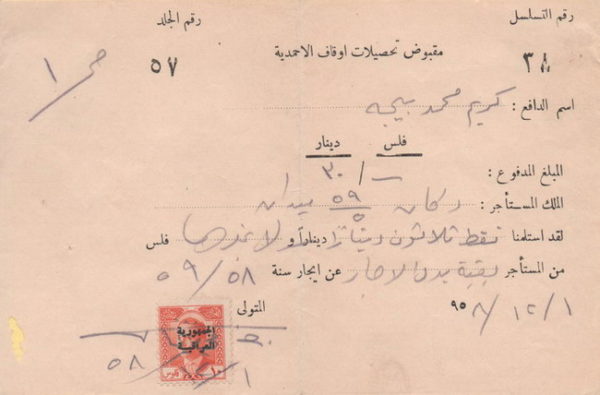 رقم التسلسل
رقم الجلد
٣٨
٥٧
مقبوض تحصيلات اوقاف الاحمدية
اسم الدافع : كريم محمد
فلس دينار
المبلغ المدفوع : ٣٠/
الملك المستأجر : دكان ٥٩/٥ ميدان
لقد استلمنا فقط ثلاثون ديناراً دينارا و لا غيرها فلس
من المستأجر بقية بدل الايجار عن ايجار سنة ٥٩/٥٨
٩٥٨/١٢/١
المتولى
الجمهورية
العراقية